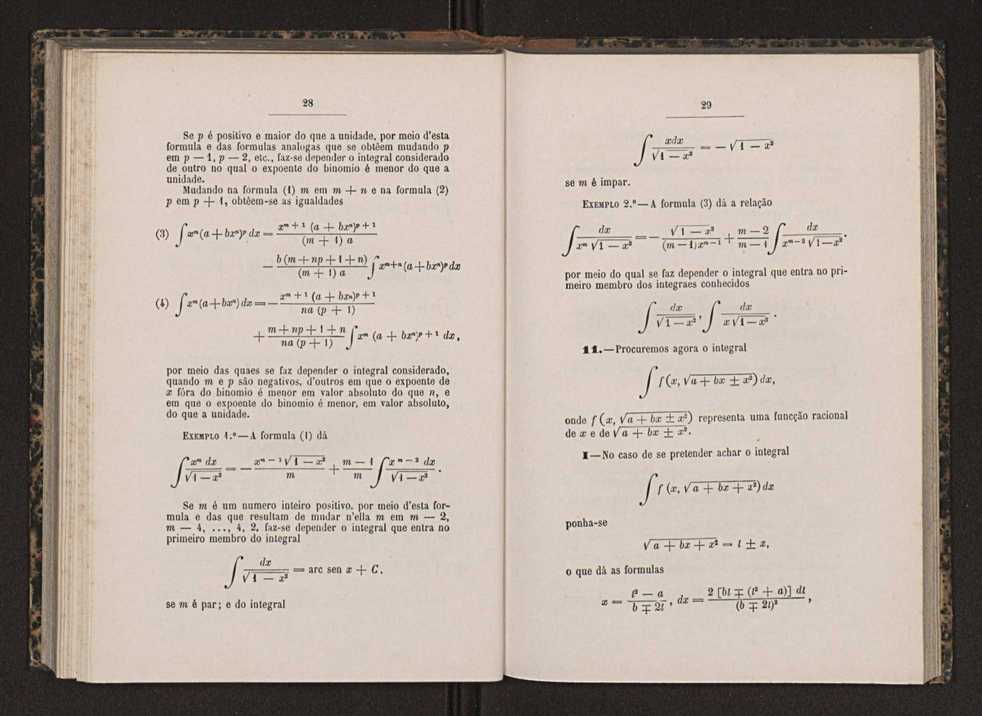 28
Se p é positivo e maior do que a unidade, por meio d'esta
formula e das formulas analogas que se obtêem mudando p
em p — 1, p — 2, etc., faz-se depender o integral considerado
de outro no qual o expoente do binomio é menor do que a
unidade.
Mudando na formula (1) m em m + n e na formula (2)
p em p + 1, obtêem-se as igualdades
(3) ∫ xᵐ (a + bxⁿ)ᵖ dx = \frac{x^{m+1} (a + bx^n)^{p+1}}{(m + 1) a}
— \frac{b (m + np + 1 + n)}{(m + 1) a} ∫ x^{m+n} (a + bx^n)^p dx
(4) ∫ x^m (a + bx^n) dx = — \frac{x^{m+1} (a + bx^n)^{p+1}}{na (p + 1)}
+ \frac{m + np + 1 + n}{na (p + 1)} ∫ x^m (a + bx^n)^{p+1} dx,
por meio das quaes se faz depender o integral considerado,
quando m e p são negativos, d'outros em que o expoente de
x fóra do binomio é menor em valor absoluto do que n, e
em que o expoente do binomio é menor, em valor absoluto,
do que a unidade.
EXEMPLO 1.º — A formula (1) dá
∫ \frac{x^m dx}{√(1 — x²)} = — \frac{x^{m-1} √(1 — x²)}{m} + \frac{m — 1}{m} ∫ \frac{x^{m-2} dx}{√(1 — x²)}.
Se m é um numero inteiro positivo, por meio d'esta for-
mula e das que resultam de mudar n'ella m em m — 2,
m — 4, ..., 4, 2, faz-se depender o integral que entra no
primeiro membro do integral
∫ \frac{dx}{√(1 — x²)} = arc sen x + C.
se m é par; e do integral
29
∫ \frac{xdx}{√(1 — x²)} = — √(1 — x²)
se m é impar.
EXEMPLO 2.º — A formula (3) dá a relação
∫ \frac{dx}{x^m √(1 — x²)} = — \frac{√(1 — x²)}{(m — 1) x^{m-1}} + \frac{m — 2}{m — 1} ∫ \frac{dx}{x^{m-2} √(1 — x²)}.
por meio do qual se faz depender o integral que entra no pri-
meiro membro dos integraes conhecidos
∫ \frac{dx}{√(1 — x²)}, ∫ \frac{dx}{x √(1 — x²)}.
11. — Procuremos agora o integral
∫ f (x, √(a + bx ± x²)) dx,
onde f (x, √(a + bx ± x²)) representa uma funcção racional
de x e de √(a + bx ± x²).
I — No caso de se pretender achar o integral
∫ f (x, √(a + bx + x²)) dx
ponha-se
√(a + bx + x²) = t ± x,
o que dá as formulas
x = \frac{t² — a}{b ∓ 2t}, dx = \frac{2 [bt ∓ (t² + a)] dt}{(b ∓ 2t)²},